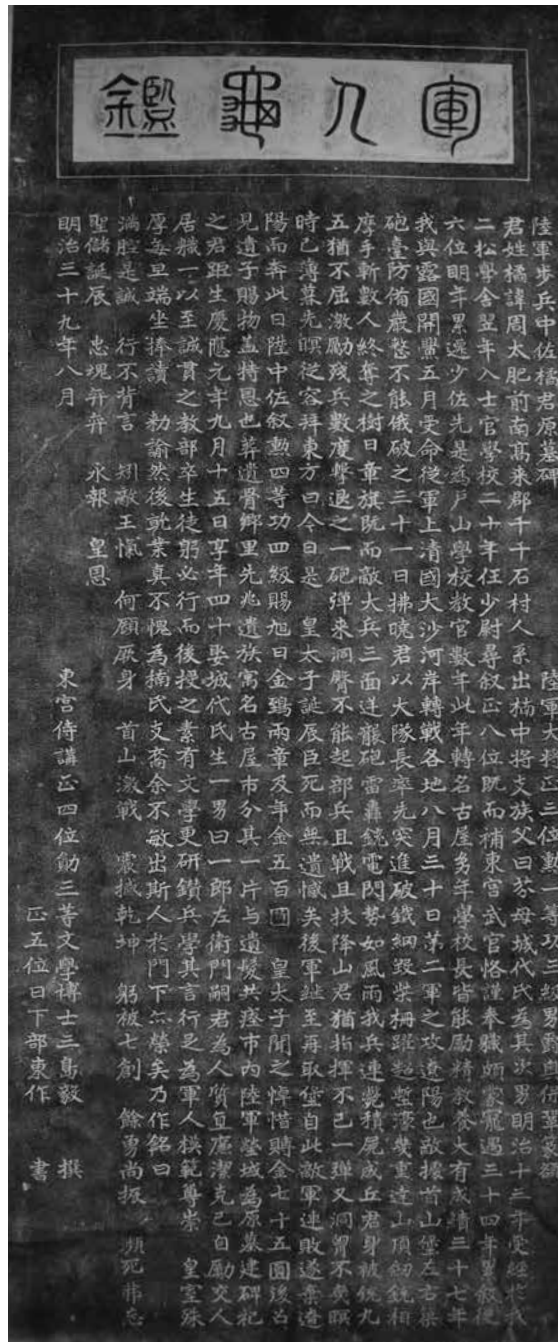 軍人龜鑑
陸軍步兵中佐橘君原墓碑 陸軍大將正三位勳一等功三級男爵
君姓橘諱周太肥前南高來郡千十石村人系出楠中將支族父曰芬母城代氏為其次男明治十三年受經於我
二松學舍翌年入士官學校二十年任少尉尋敘正八位既而補東宮武官恪謹奉職頗蒙寵遇三十四年累敘從
六位明年累遷少佐先是為戶山學校教官數年此年轉名古屋幼年學校長皆能勵精教養大有成績三十七年
我與露國開釁五月受命從軍上清國大沙河岸轉戰各地八月三十日第二軍之攻遼陽也敵據首山堡左右築
砲臺防備嚴整不能俄破之三十一日拂曉君以大隊長率先突進破鐵網毀柴柵躍越塹濠幾重達山頂劒銃相
摩手斬數人終奪之樹日章旗既而敵大兵三面逆襲砲雷轟銃電閃勢如風雨我兵連斃積屍成丘君身被銃丸
五猶不屈激勵殘兵數度擊退之一砲彈來洞臀不能起部兵且戰且扶降山君猶指揮不已一彈又洞胷不矣瞑
時已薄暮先瞑從容拜東方曰今日是 皇太子誕辰臣死而無遺憾矣後軍繼至再取堡自此敵軍連敗遂棄遼
陽而奔此日陞中佐敘勲四等功四級賜旭日金鵄兩章及年金五百圓 皇太子聞之悼惜賻金七十五圓後召
見遺子賜物蓋特恩也葬遺骨鄉里先兆遺族寓名古屋市分其一片与遺髮共瘞市內陸軍塋域為原墓建碑祀
之君距生慶應元年九月十五日享年四十娶城代氏生一男曰一郎左衛門嗣君為人質直廉潔克己自勵交人
居職一以至誠貫之教部卒生徒躬必行而後授之素有文學更研鑽兵學其言行足為軍人模範尊崇 皇室殊
厚每旦端坐捧讀 勅諭然後就業真不愧為楠氏支裔余不敏出斯人於門下亦榮矣乃作銘曰
滿腔是誠 行不背言 矧敵王愾 何願厥身 首山激戰 震撼乾坤 躬被七創 餘勇尚振 瀕死弗忘
聖儲誕辰 忠塊弈弈 永報 皇恩
明治三十九年八月 東宮侍講正四位勳三等文學博士三島毅 撰
正五位日下部東作 書